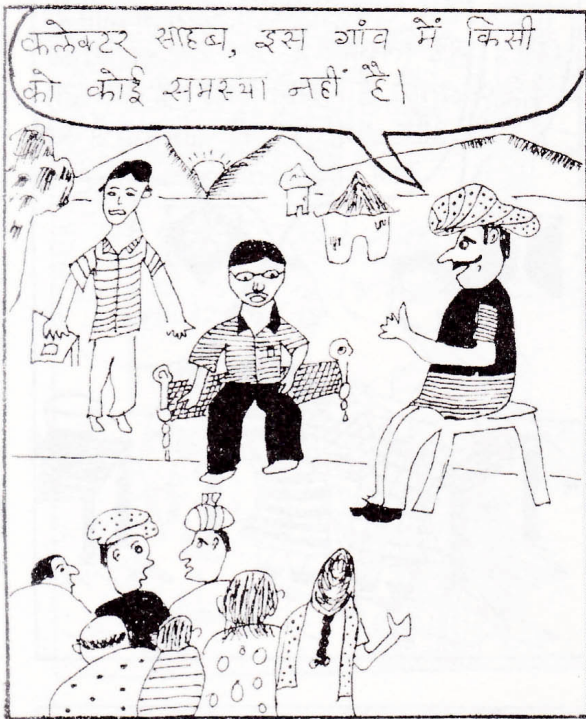 कलेक्टर साहब, इस गांव में किसी
को कोई समस्या नहीं है।